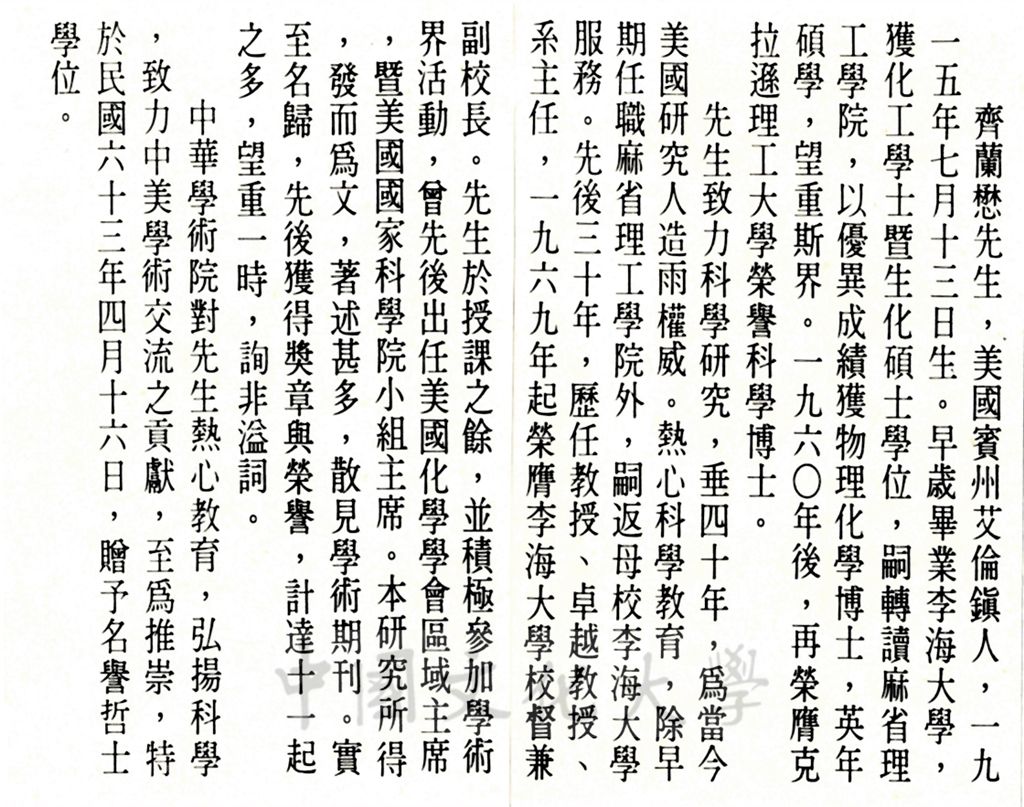 齊蘭懋先生，美國賓州艾倫鎭人，一九
一五年七月十三日生。早歲畢業李海大學，
獲化工學士暨生化碩士學位，嗣轉讀麻省理
工學院，以優異成績獲物理化學博士，英年
碩學，望重斯界。一九六〇年後，再榮膺克
拉遜理工大學榮譽科學博士。
先生致力科學研究，垂四十年，爲當今
美國研究人造雨權威。熱心科學教育，除早
期任職麻省理工學院外，嗣返母校李海大學
服務。先後三十年，歷任教授、卓越教授、
系主任，一九六九年起榮膺李海大學校督兼
副校長。先生於授課之餘，並積極參加學術
界活動，曾先後出任美國化學學會區域主席
，暨美國國家科學院小組主席。本研究所得
，發而爲文，著述甚多，散見學術期刊。實
至名歸，先後獲得獎章與榮譽，計達十一起
之多，望重一時，詢非溢詞。
中華學術院對先生熱心教育，弘揚科學
，致力中美學術交流之貢獻，至爲推崇，特
於民國六十三年四月十六日，贈予名譽哲士
學位。
中國文化大學